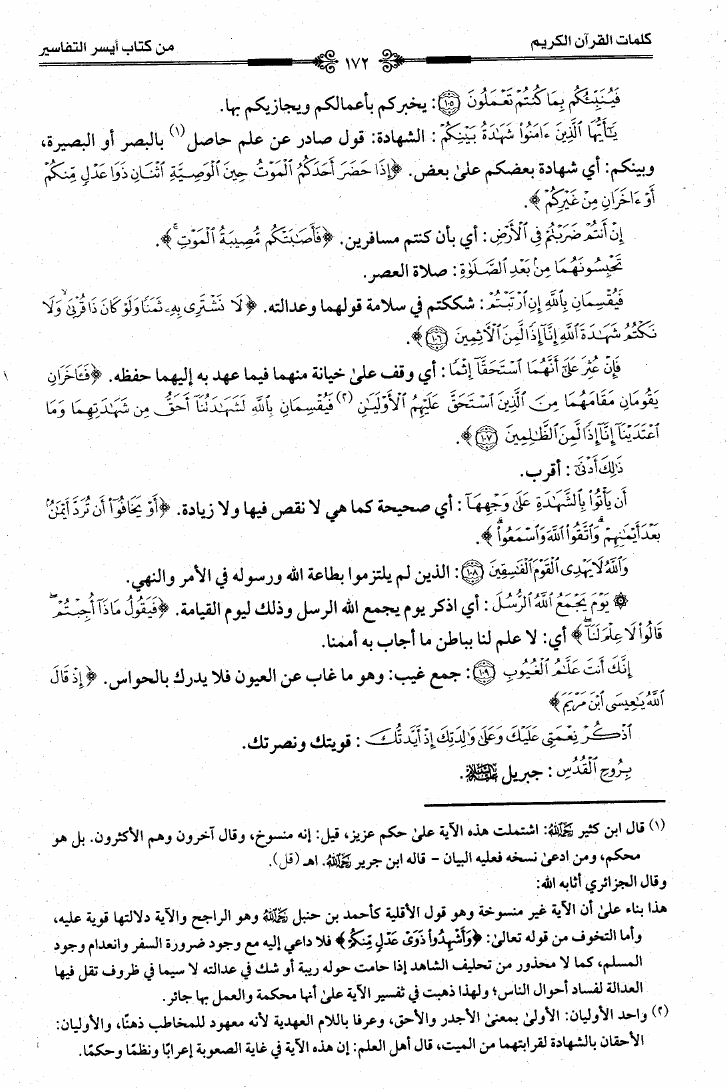 كلمات القرآن الكريم
١٧٢
من كتاب أيسر التفاسير
فَيُنَبِّئُكُم بِمَا كُنتُمْ تَعْمَلُونَ ﴿١٠٥﴾: يخبركم بأعمالكم ويجازيكم بها.
يَٰٓأَيُّهَا ٱلَّذِينَ ءَامَنُوا۟ شَهَٰدَةُ بَيْنِكُمْ: الشهادة: قول صادر عن علم حاصل(١) بالبصر أو البصيرة،
وبينكم: أي شهادة بعضكم علىٰ بعض. ﴿إِذَا حَضَرَ أَحَدَكُمُ ٱلْمَوْتُ حِينَ ٱلْوَصِيَّةِ ٱثْنَانِ ذَوَا عَدْلٍ مِّنكُمْ
أَوْ ءَاخَرَانِ مِنْ غَيْرِكُمْ﴾.
إِنْ أَنتُمْ ضَرَبْتُمْ فِى ٱلْأَرْضِ: أي بأن كنتم مسافرين. ﴿فَأَصَٰبَتْكُم مُّصِيبَةُ ٱلْمَوْتِ ۚ﴾.
تَحْبِسُونَهُمَا مِنۢ بَعْدِ ٱلصَّلَوٰةِ: صلاة العصر.
فَيُقْسِمَانِ بِٱللَّهِ إِنِ ٱرْتَبْتُمْ: شككتم في سلامة قولهما وعدالته. ﴿لَا نَشْتَرِى بِهِۦ ثَمَنًا وَلَوْ كَانَ ذَا قُرْبَىٰ ۙ وَلَا
نَكْتُمُ شَهَٰدَةَ ٱللَّهِ إِنَّآ إِذًا لَّمِنَ ٱلْءَاثِمِينَ ﴿١٠٦﴾﴾.
فَإِنْ عُثِرَ عَلَىٰٓ أَنَّهُمَا ٱسْتَحَقَّآ إِثْمًا: أي وقف علىٰ خيانة منهما فيما عهد به إليهما حفظه. ﴿فَـَٔاخَرَانِ
يَقُومَانِ مَقَامَهُمَا مِنَ ٱلَّذِينَ ٱسْتَحَقَّ عَلَيْهِمُ ٱلْأَوْلَيَٰنِ(٢) فَيُقْسِمَانِ بِٱللَّهِ لَشَهَٰدَتُنَآ أَحَقُّ مِن شَهَٰدَتِهِمَا وَمَا
ٱعْتَدَيْنَآ إِنَّآ إِذًا لَّمِنَ ٱلظَّٰلِمِينَ ﴿١٠٧﴾﴾.
ذَٰلِكَ أَدْنَىٰٓ: أقرب.
أَن يَأْتُوا۟ بِٱلشَّهَٰدَةِ عَلَىٰ وَجْهِهَآ: أي صحيحة كما هي لا نقص فيها ولا زيادة. ﴿أَوْ يَخَافُوٓا۟ أَن تُرَدَّ أَيْمَٰنٌۢ
بَعْدَ أَيْمَٰنِهِمْ ۗ وَٱتَّقُوا۟ ٱللَّهَ وَٱسْمَعُوا۟ ۗ﴾.
وَٱللَّهُ لَا يَهْدِى ٱلْقَوْمَ ٱلْفَٰسِقِينَ ﴿١٠٨﴾: الذين لم يلتزموا بطاعة الله ورسوله في الأمر والنهي.
۞ يَوْمَ يَجْمَعُ ٱللَّهُ ٱلرُّسُلَ: أي اذكر يوم يجمع الله الرسل وذلك ليوم القيامة. ﴿فَيَقُولُ مَاذَآ أُجِبْتُمْ ۖ
قَالُوا۟ لَا عِلْمَ لَنَآ ۖ﴾ أي: لا علم لنا بباطن ما أجاب به أممنا.
إِنَّكَ أَنتَ عَلَّٰمُ ٱلْغُيُوبِ ﴿١٠٩﴾: جمع غيب: وهو ما غاب عن العيون فلا يدرك بالحواس. ﴿إِذْ قَالَ
ٱللَّهُ يَٰعِيسَى ٱبْنَ مَرْيَمَ﴾
ٱذْكُرْ نِعْمَتِى عَلَيْكَ وَعَلَىٰ وَٰلِدَتِكَ إِذْ أَيَّدتُّكَ: قويتك ونصرتك.
بِرُوحِ ٱلْقُدُسِ: جبريل عليه السلام.
(١) قال ابن كثير رحمه الله: اشتملت هذه الآية علىٰ حكم عزيز، قيل: إنه منسوخ، وقال آخرون وهم الأكثرون. بل هو
محكم، ومن ادعىٰ نسخه فعليه البيان – قاله ابن جرير رحمه الله. اهـ (قل).
وقال الجزائري أثابه الله:
هذا بناء علىٰ أن الآية غير منسوخة وهو قول الأقلية كأحمد بن حنبل رحمه الله وهو الراجح والآية دلالتها قوية عليه،
وأما التخوف من قوله تعالىٰ: ﴿وَأَشْهِدُوا۟ ذَوَىْ عَدْلٍ مِّنكُمْ﴾ فلا داعي إليه مع وجود ضرورة السفر وانعدام وجود
المسلم، كما لا محذور من تحليف الشاهد إذا حامت حوله ريبة أو شك في عدالته لا سيما في ظروف تقل فيها
العدالة لفساد أحوال الناس؛ ولهذا ذهبت في تفسير الآية علىٰ أنها محكمة والعمل بها جائر.
(٢) واحد الأوليان: الأولىٰ بمعنىٰ الأجدر والأحق، وعرفا باللام العهدية لأنه معهود للمخاطب ذهنًا، والأوليان:
الأحقان بالشهادة لقرابتهما من الميت، قال أهل العلم: إن هذه الآية في غاية الصعوبة إعرابًا ونظمًا وحكمًا.